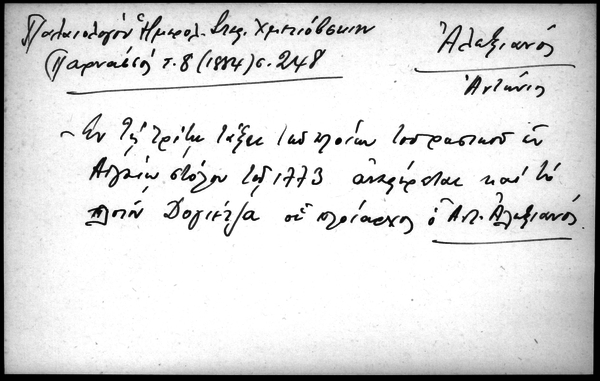 Παλαιολόγου Ἡμερολ. Στεφ. Χμετιόβσκιη
Παρνασσός τ. 8 (1884) σ. 248
Ἀλεξιανός
Ἀντώνιος
~ Ἐν τῇ τρίτῃ τάξει τῶν πλοίων τοῦ ρωσσικοῦ ἐν
Αἰγαίῳ στόλου τοῦ 1773 ἀναφέρεται καὶ τὸ
πλοῖον οὗ πλοίαρχος ὁ Ἀντ. Ἀλεξιανός